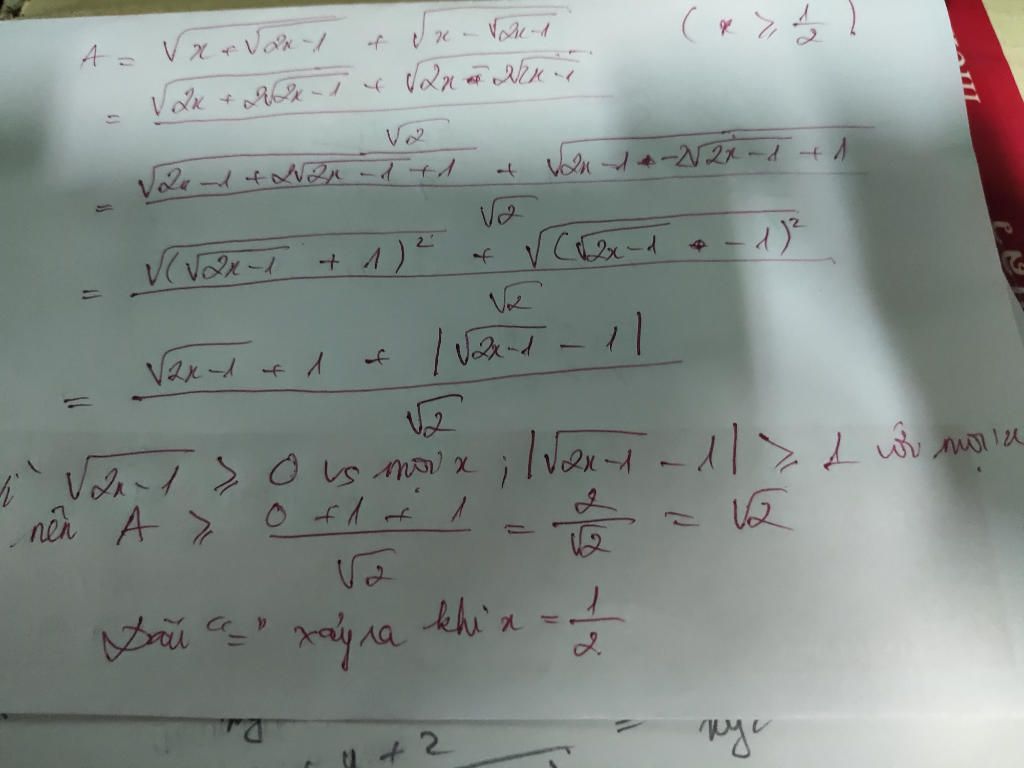 A = √(x + √(2x-1)) + √(x - √(2x-1)) (x ≥ 1/2)
= (√(2x + 2√(2x-1)) + √(2x - 2√(2x-1))) / √2
= (√(2x-1 + 2√(2x-1) + 1) + √(2x-1 - 2√(2x-1) + 1)) / √2
= (√((√(2x-1) + 1)²) + √((√(2x-1) - 1)²)) / √2
= (√(2x-1) + 1 + |√(2x-1) - 1|) / √2
√(2x-1) ≥ 0 vs mọi x ; |√(2x-1) - 1| ≥ 1 với mọi x
nên A ≥ (0 + 1 + 1) / √2 = 2/√2 = √2
Dấu "=" xảy ra khi x = 1/2